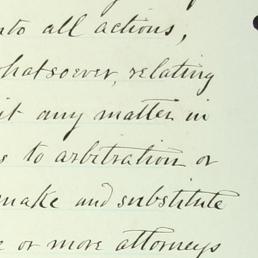 nto all actions,
whatsoever, relating
it any matter in
s to arbitration or
make and substitute
e or more attorneys